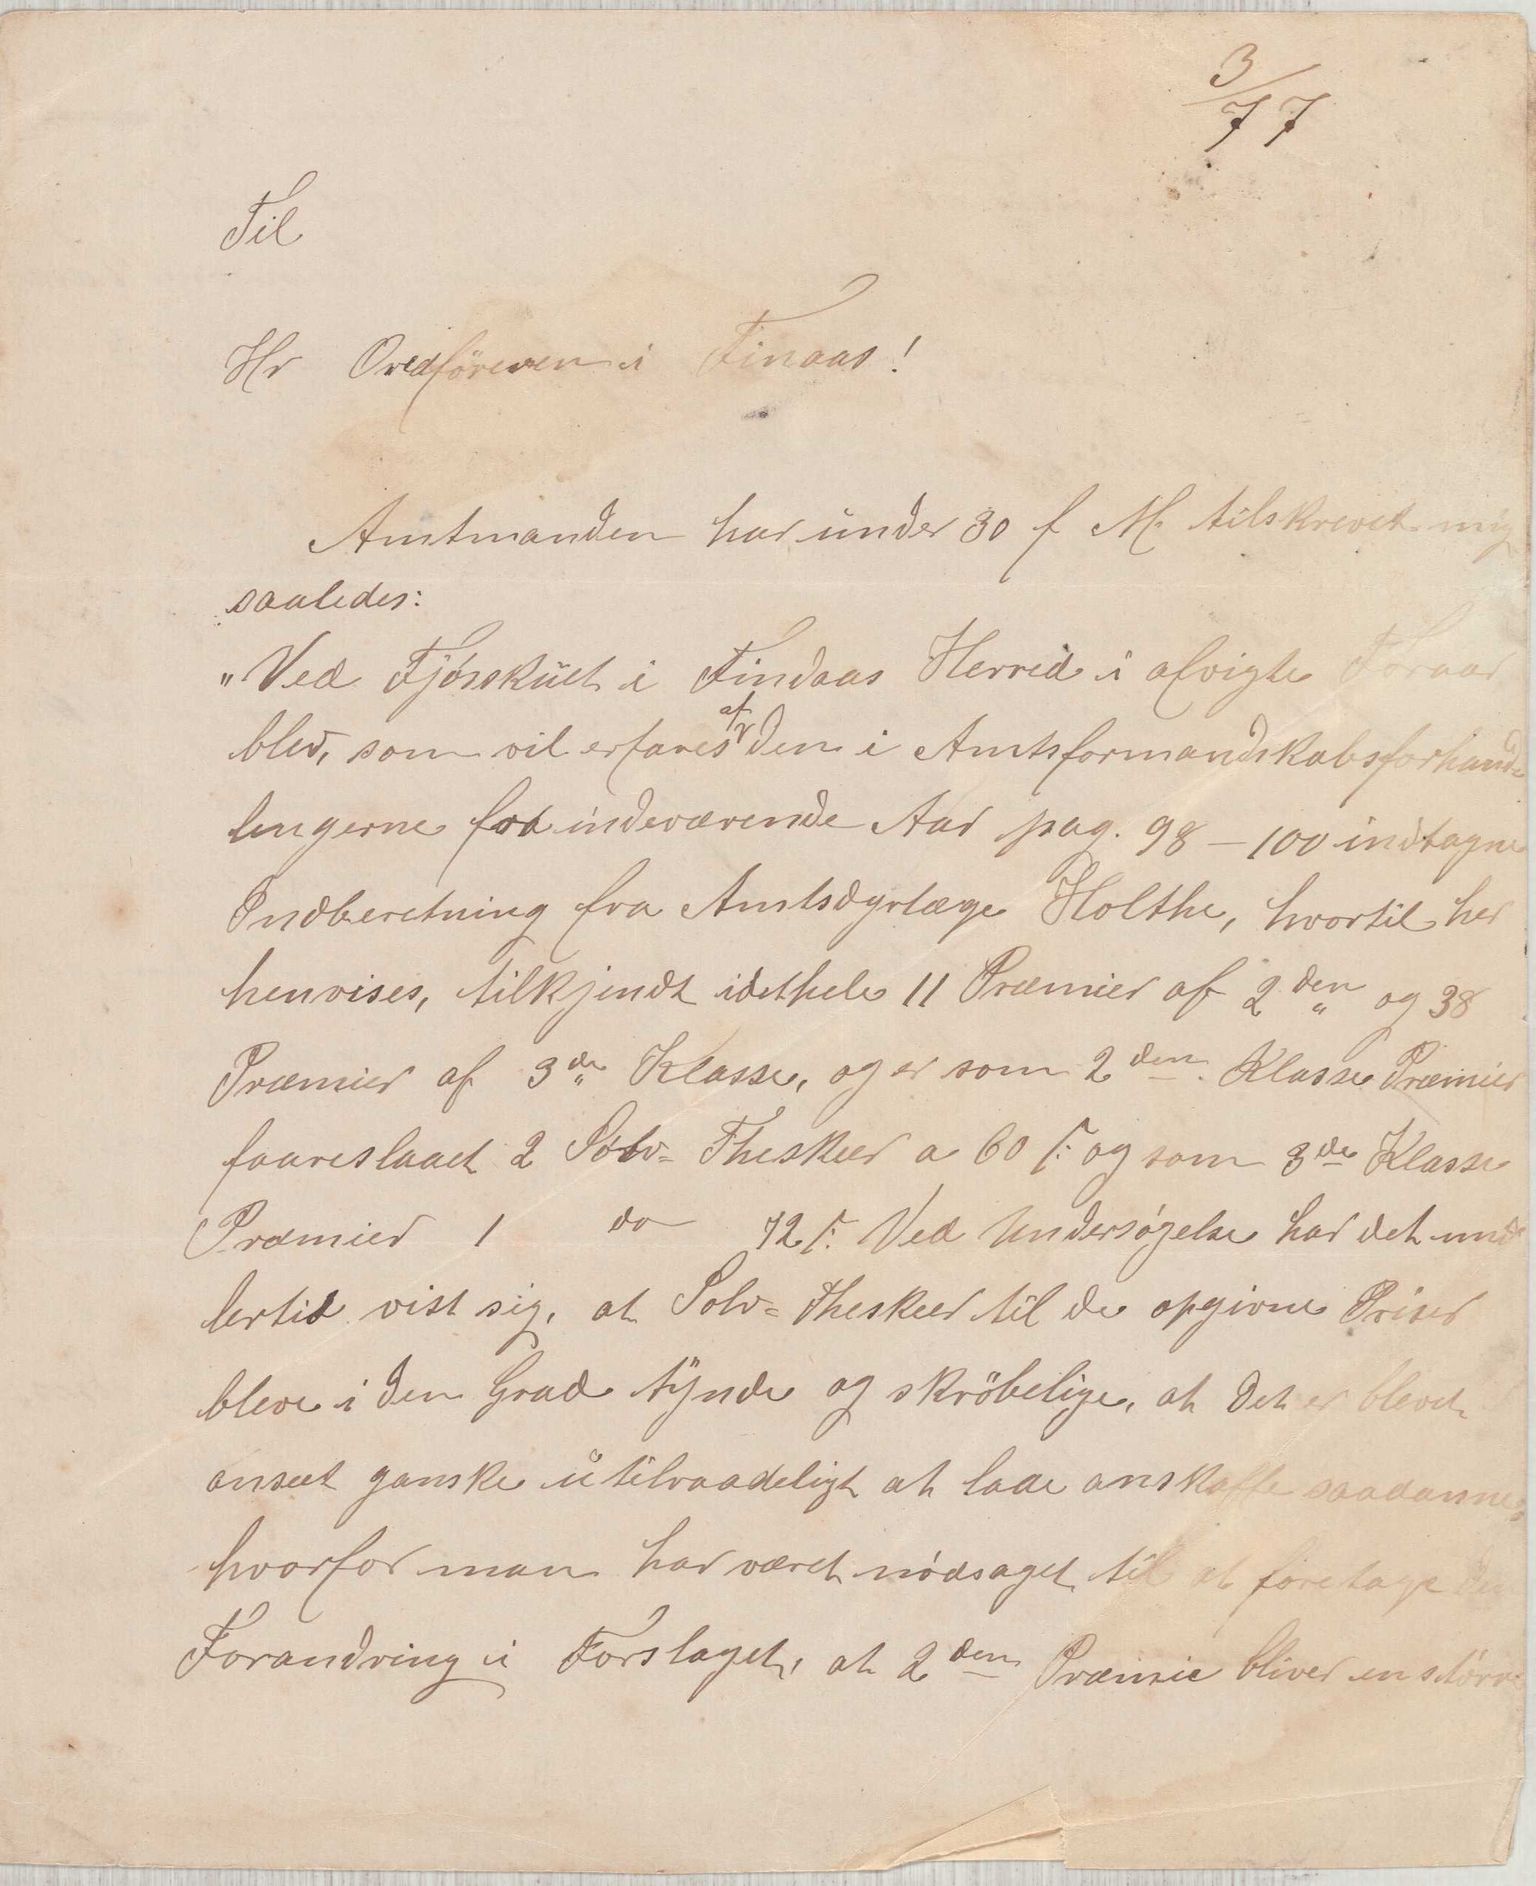 3/77
Til
Hr Ordføreren i Finaas!
Amtmanden har under 30 f M. tilskrevet mig
saaledes:
"Ved Fjösskuet i Findaas Herred i afvigte Foraar
blev, som vil erfares af den i Amtsformandskabsforhand-
lingerne for indeværende Aar pag. 98 – 100 indtagne
Indberetning fra Amtsdyrlæge Holthe, hvortil her
henvises, tilkjendt idethele 11 Præmier af 2den og 38
Præmier af 3de Klasse, og er som 2den Klasse Præmier
foareslaaet 2 Sølv- Theskeer a 60 ſ: og som 3de Klasse
Præmier 1 do 72 ſ. Ved Undersøgelse har det imid
lertid vist sig, at Sølv- Theskeer til de opgivne Priser
bleve i den Grad tÿnde og skröbelige, at det er blevet
anseet ganske utilraadeligt at lade anskaffe saadanne,
hvorfor man har været nödsaget til at foretage den
Forandring i Forslaget, at 2den Præmie bliver en större